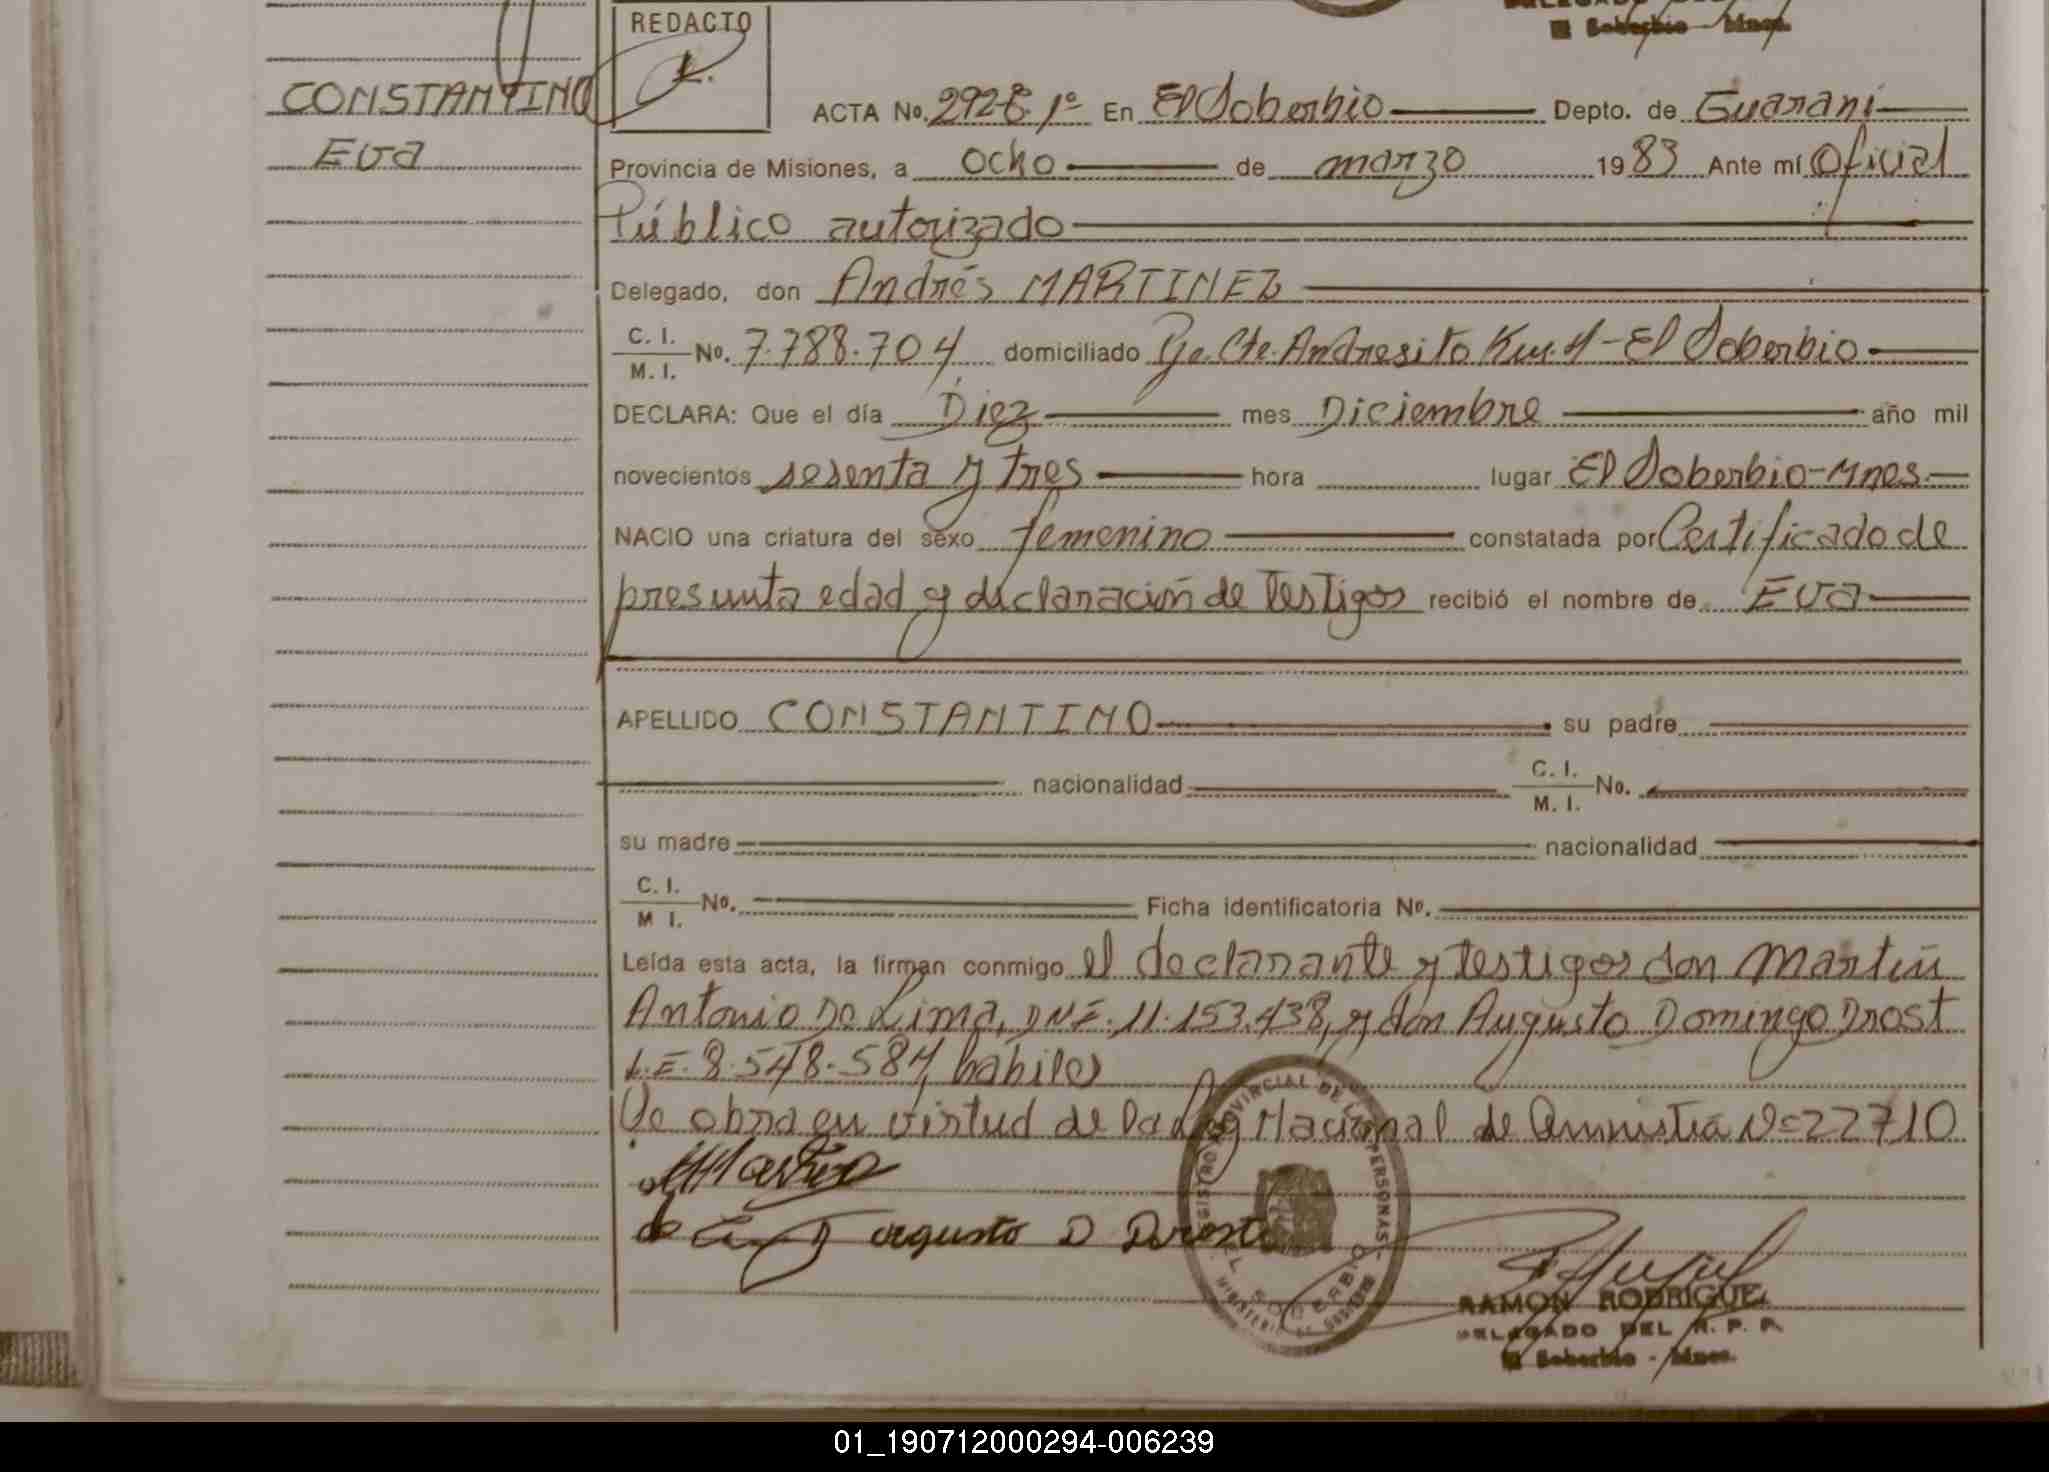 REDACTO
El Soberbio - Mnes.
CONSTANTINO
Eva
ACTA No. 292 1º En El Soberbio Depto. de Guaraní
Provincia de Misiones, a ocho de marzo 1983 Ante mí Oficial
Público autorizado
Delegado, don Andrés MARTINEZ
C. I.
M. I.
No. 7.788.704 domiciliado Cte. Andresito Km. - El Soberbio
DECLARA: Que el día Diez mes Diciembre año mil
novecientos sesenta y tres hora lugar El Soberbio-Mnes.
NACIO una criatura del sexo femenino constatada por Certificado de
presunta edad y declaración de Testigos recibió el nombre de Eva
APELLIDO CONSTANTINO su padre
nacionalidad C. I.
M. I. No.
su madre nacionalidad
C. I.
M I. No. Ficha identificatoria No.
Leída esta acta, la firman conmigo el declarante y testigos don Martín
Antonio De Lima, 11.153.438, y don Augusto Domingo Drost
L.E. 8.548.584, habiles
Se obra en virtud de la Ley Nacional de Amnistía 22710
Augusto D Drost
REGISTRO PROVINCIAL DE LAS PERSONAS
EL SOBERBIO
MINISTERIO DE GOBIERNO
RAMON RODRIGUEZ
DELEGADO DEL R. P. P.
El Soberbio - Mnes.
01_190712000294-006239